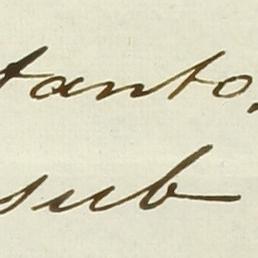 tanto,
sub